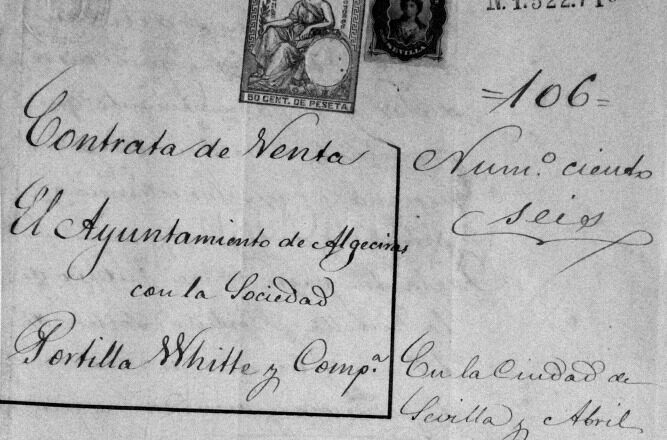 N. 1.322.71
50 CENT. DE PESETA
SEVILLA
=106=
Contrata de Venta
Num.º ciento
seis
El Ayuntamiento de Algeciras
con la Sociedad
Portilla White y Comp.ª
En la Ciudad de
Sevilla y Abril